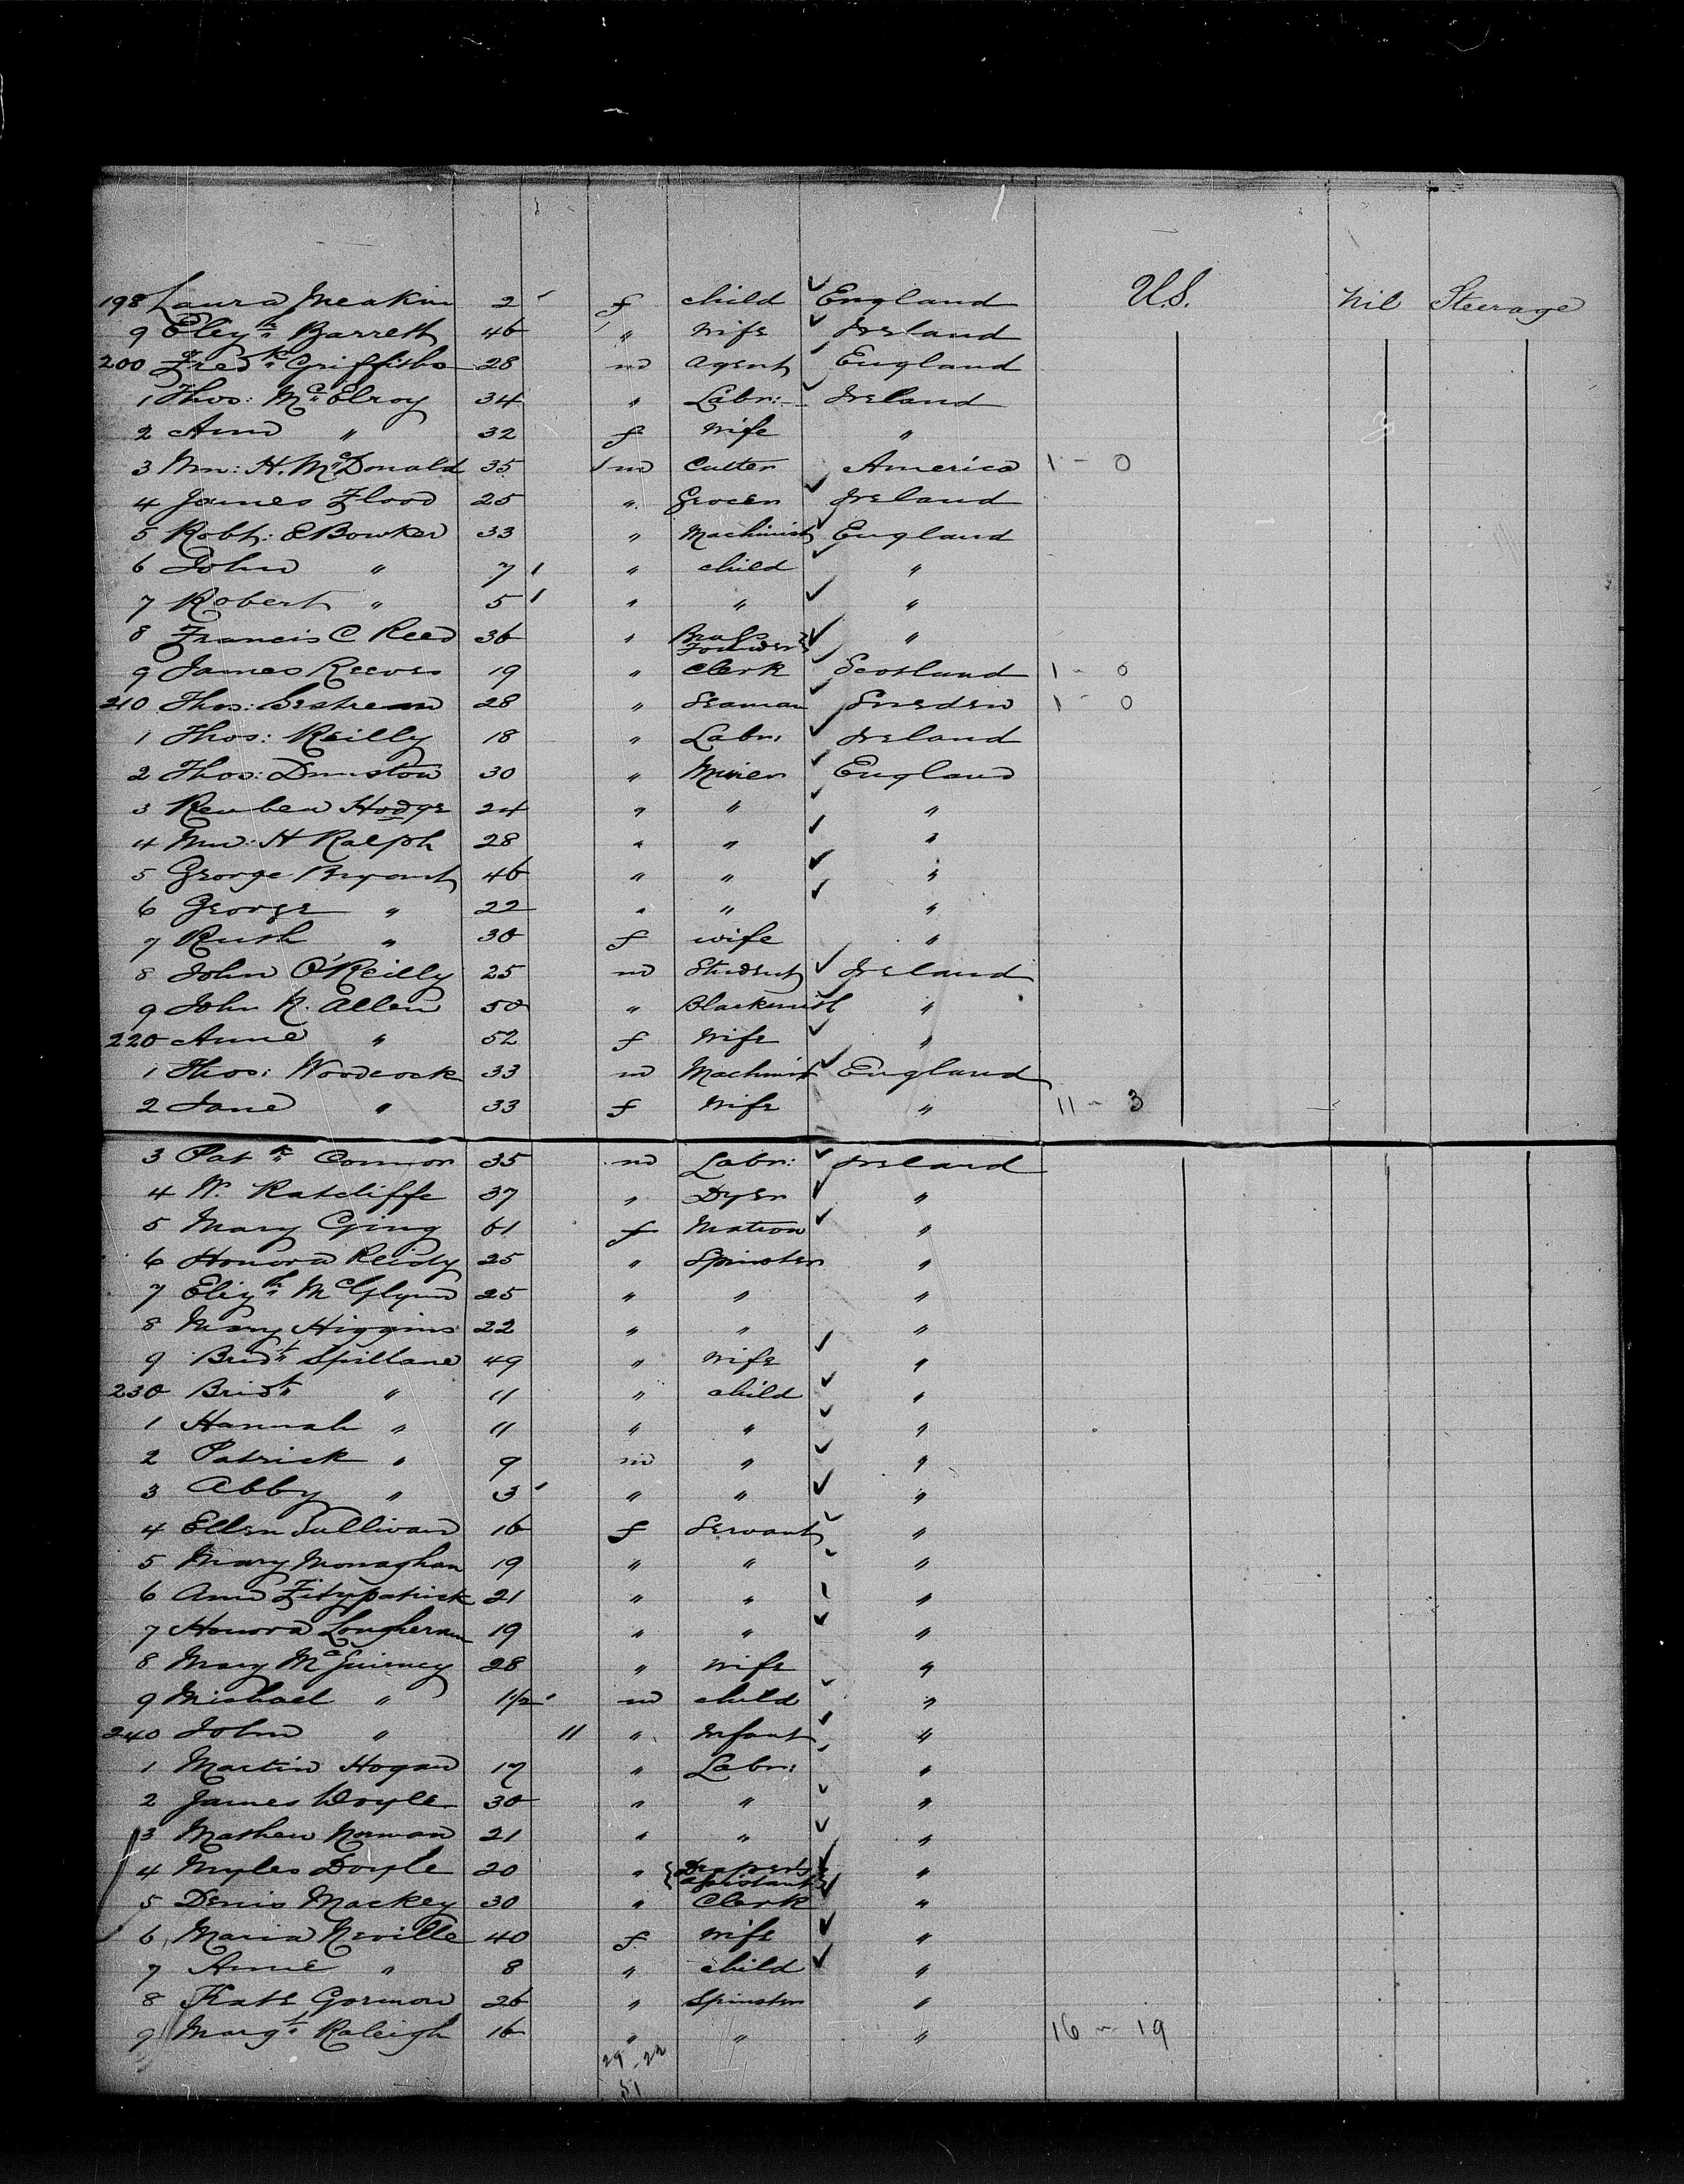 198 Laura Meakin 2 f child England U.S. Nil Steerage
9 Elizth Barrett 46 " Wife Ireland
200 Fredk Griffiths 28 m Agent England
1 Thos: McElroy 34 " Labr: Ireland
2 Ann " 32 f Wife "
3 Wm: H. McDonald 35 m Cutter America 1 - 0
4 James Flood 25 " Grocer Ireland
5 Robt: E Bowker 33 " Machinist England
6 John " 7 " child "
7 Robert " 5 " " "
8 Francis C Reed 36 " Brass Founder "
9 James Reeves 19 " Clerk Scotland 1 - 0
210 Thos: 28 " Seaman Sweden 1 - 0
1 Thos: Reilly 18 " Labr: Ireland
2 Thos: Dunstow 30 " Miner England
3 Reuben Hodge 24 " " "
4 Wm: H Ralph 28 " " "
5 George Bryant 46 " " "
6 George " 22 " " "
7 Ruth " 30 f wife "
8 John O'Reilly 25 m Student Ireland
9 John N. Allen 50 " Blacksmith "
220 Anne " 52 f Wife "
1 Thos: Woodcock 33 m Machinist England
2 Jane " 33 f Wife " 11 - 3
3 Patk Connor 35 m Labr: Ireland
4 W. Ratcliffe 37 " Dyer "
5 Mary Ging 61 f Matron "
6 Honora Reidy 25 " Spinster "
7 Elizth McGlynn 25 " " "
8 Mary Higgins 22 " " "
9 Bridt Spillane 49 " Wife "
230 Bridt " 11 " child "
1 Hannah " 11 " " "
2 Patrick " 9 m " "
3 Abby " 3 " " "
4 Ellen Sullivan 16 f Servant "
5 Mary Monaghan 19 " " "
6 Ann Fitzpatrick 21 " " "
7 Honora Lougheran 19 " " "
8 Mary 28 " Wife "
9 Michael " 1 1/2 m child "
240 John " 11 " Infant "
1 Martin Hogan 17 " Labr: "
2 James Doyle 30 " " "
3 Mathew Norman 21 " " "
4 Myles Doyle 20 " Drapers Assistant "
5 Denis Mackey 30 " Clerk "
6 Maria Neville 40 f Wife "
7 Anne " 8 " child "
8 Kate Gorman 26 " Spinster "
9 Margt Raleigh 16 " " " 16 - 19
29 - 22
51